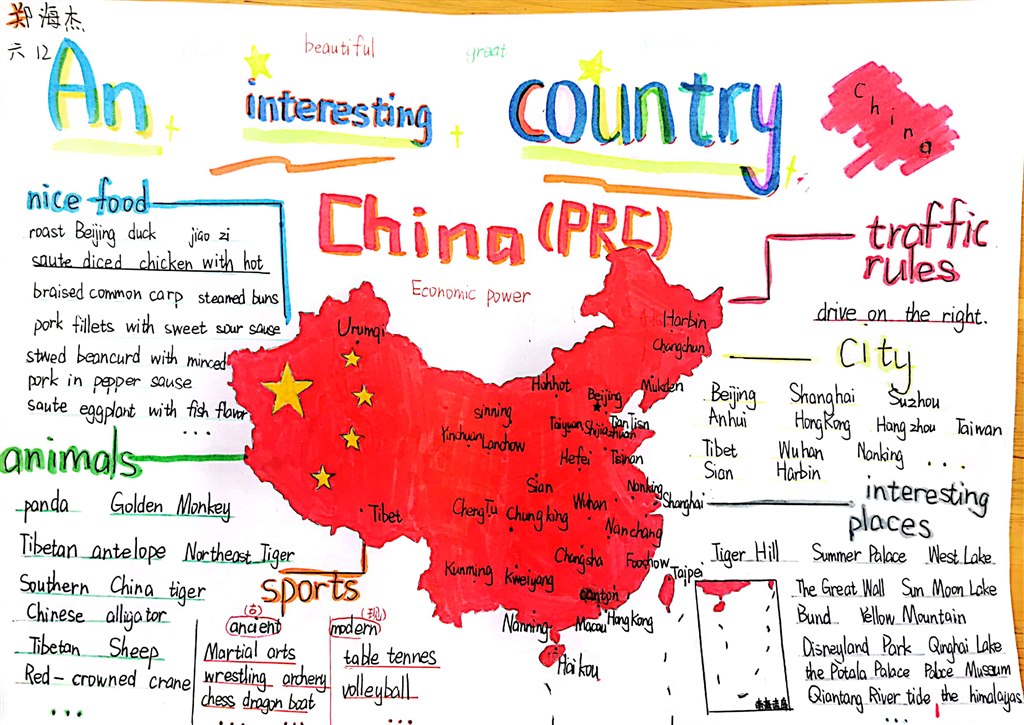 郑海杰
六12
beautiful
great
An interesting country
China
China (PRC)
Economic power
nice food
roast Beijing duck jiao zi
saute diced chicken with hot
braised common carp steamed buns
pork fillets with sweet sour sause
stwed beancurd with minced
pork in pepper sause
saute eggplant with fish flavor
...
animals
panda Golden Monkey
Tibetan antelope Northeast Tiger
Southern China tiger
Chinese alligator
Tibetan Sheep
Red-crowned crane
...
sports
(古)
ancient
Martial arts
wrestling archery
chess dragon boat
...
(现)
modern
table tennes
volleyball
...
traffic
rules
drive on the right.
City
Beijing Shanghai Suzhou
Anhui HongKong Hangzhou Taiwan
Tibet Wuhan Nanking ...
Sian Harbin
interesting
places
Tiger Hill Summer Palace West Lake
The Great Wall Sun Moon Lake
Bund Yellow Mountain
Disneyland Park Qinghai Lake
the Potala Palace Palace Museum
Qiantang River tide the himalayas
...
Urumqi
Harbin
Changchun
Mukden
Hohhot
Beijing
TianTisn
sinning
Taiyuan
Yinchuan
Lanchow
Hefei
Tsinan
Sian
Nanking
Shanghai
Wuhan
ChengTu
Chungking
Nanchang
Tibet
Changsha
Foochow
Taipei
Kunming
Kweiyang
Canton
Nanning
Macau
HongKong
Haikou